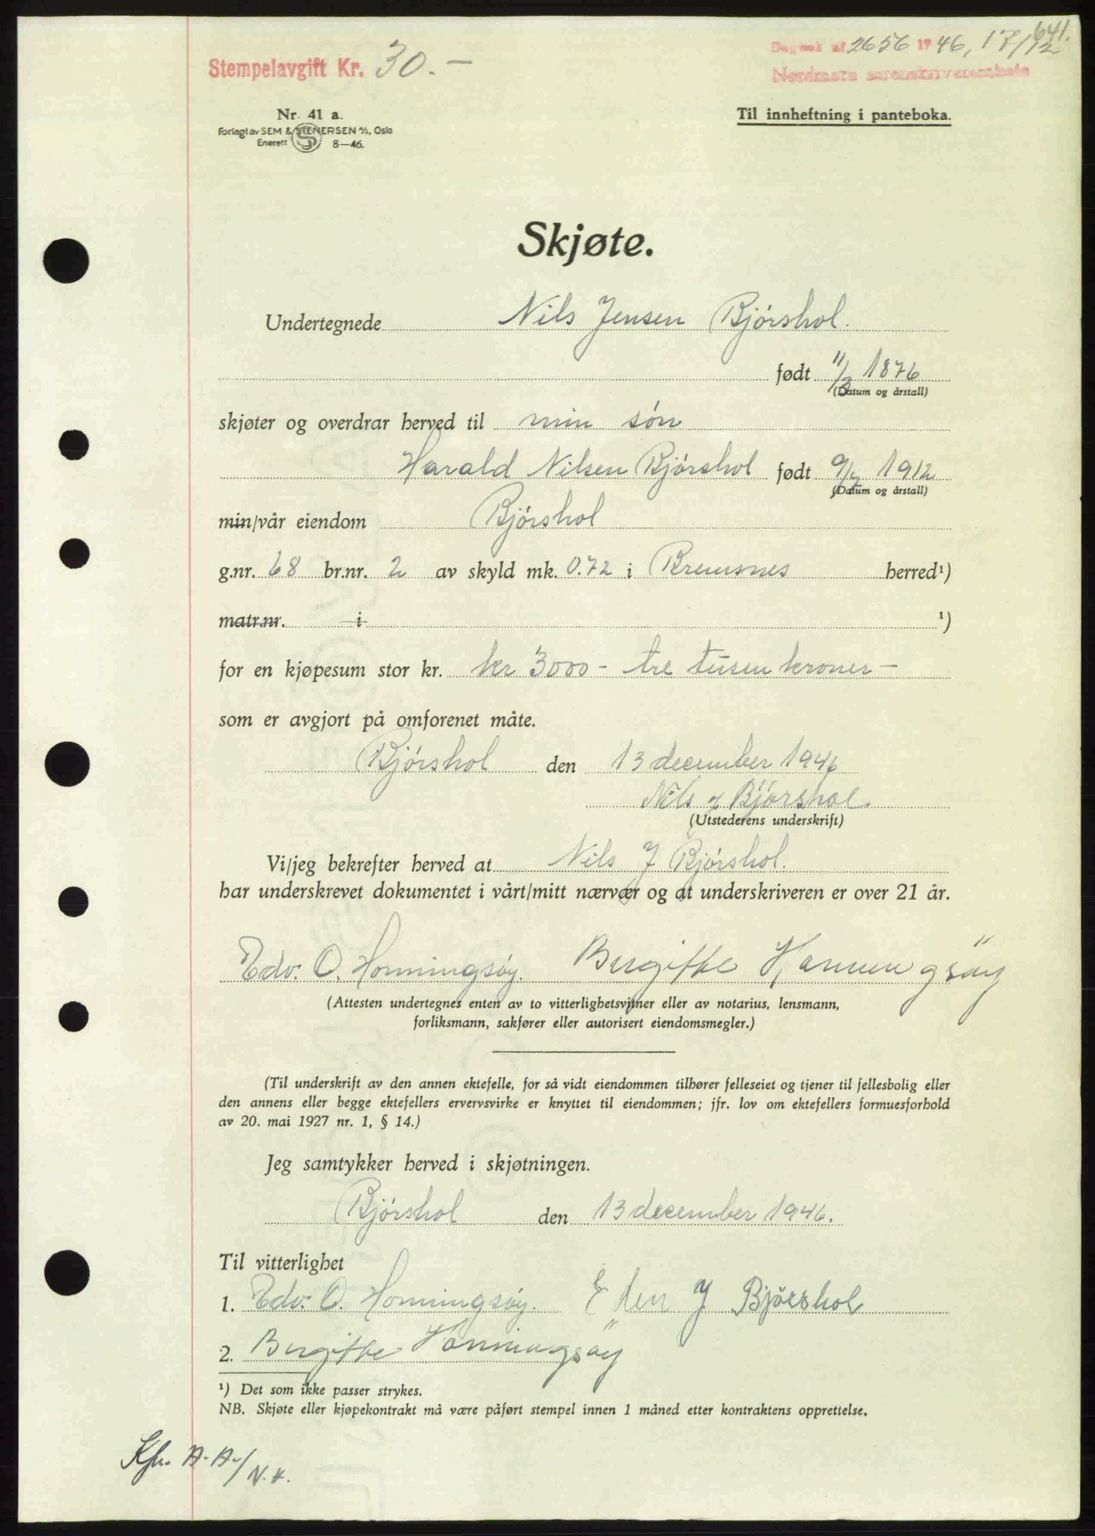 641.
Dagbok nr. 2656 1946, 17/12
Nordmøre sorenskriverembete
Stempelavgift Kr. 30.-
Nr. 41 a.
Forlagt av SEM & STENERSEN A/S, Oslo
Enerett S 8—46.
Til innheftning i panteboka.
Skjøte.
Undertegnede Nils Jensen Bjørshol.
født 11/3 1876
(Datum og årstall)
skjøter og overdrar herved til min søn
Harald Nilsen Bjørshol født 9/7 1912
(Datum og årstall)
min/vår eiendom Bjørshol
g.nr. 68 br.nr. 2 av skyld mk. 0.72 i Bremsnes herred¹)
matr.nr. i ¹)
for en kjøpesum stor kr. kr 3000 - tre tusen kroner -
som er avgjort på omforenet måte.
Bjørshol den 13 december 1946
Nils J Bjørshol.
(Utstederens underskrift)
Vi/jeg bekrefter herved at Nils J Bjørshol.
har underskrevet dokumentet i vårt/mitt nærvær og at underskriveren er over 21 år.
Edv. O. Honningsøy. Birgitte Honningsøy
(Attesten undertegnes enten av to vitterlighetsvitner eller av notarius, lensmann,
forliksmann, sakfører eller autorisert eiendomsmegler.)
(Til underskrift av den annen ektefelle, for så vidt eiendommen tilhører felleseiet og tjener til fellesbolig eller
den annens eller begge ektefellers ervervsvirke er knyttet til eiendommen; jfr. lov om ektefellers formuesforhold
av 20. mai 1927 nr. 1, § 14.)
Jeg samtykker herved i skjøtningen.
Bjørshol den 13 december 1946.
Til vitterlighet
1. Edv. O. Honningsøy. Elen J Bjørshol
2. Birgitte Honningsøy
¹) Det som ikke passer strykes.
NB. Skjøte eller kjøpekontrakt må være påført stempel innen 1 måned etter kontraktens opprettelse.